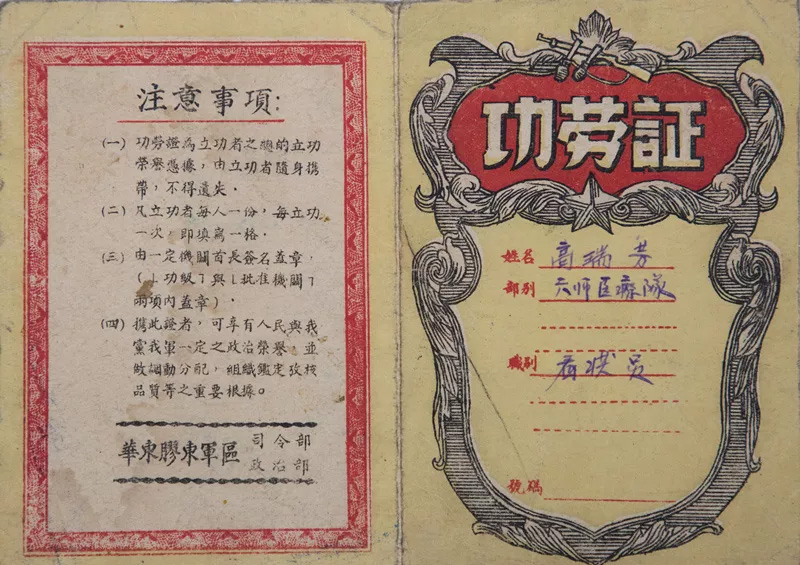 注意事項:
(一) 功劳證為立功者之總的立功
荣譽憑據，由立功者隨身携
帶，不得遺失．
(二) 凡立功者每人一份，每立功
一次，即填寫一格．
(三) 由一定機關首長簽名盖章，
(「功級」與「批准機關」
兩項内盖章)．
(四) 携此證者，可享有人民與我
黨我軍一定之政治榮譽，並
做調動分配，組織鑑定攷核
品質等之重要根據。
華東膠東軍區 司令部
政治部
功劳証
姓名 高瑞芳
部别 六师医療隊
職别
號碼